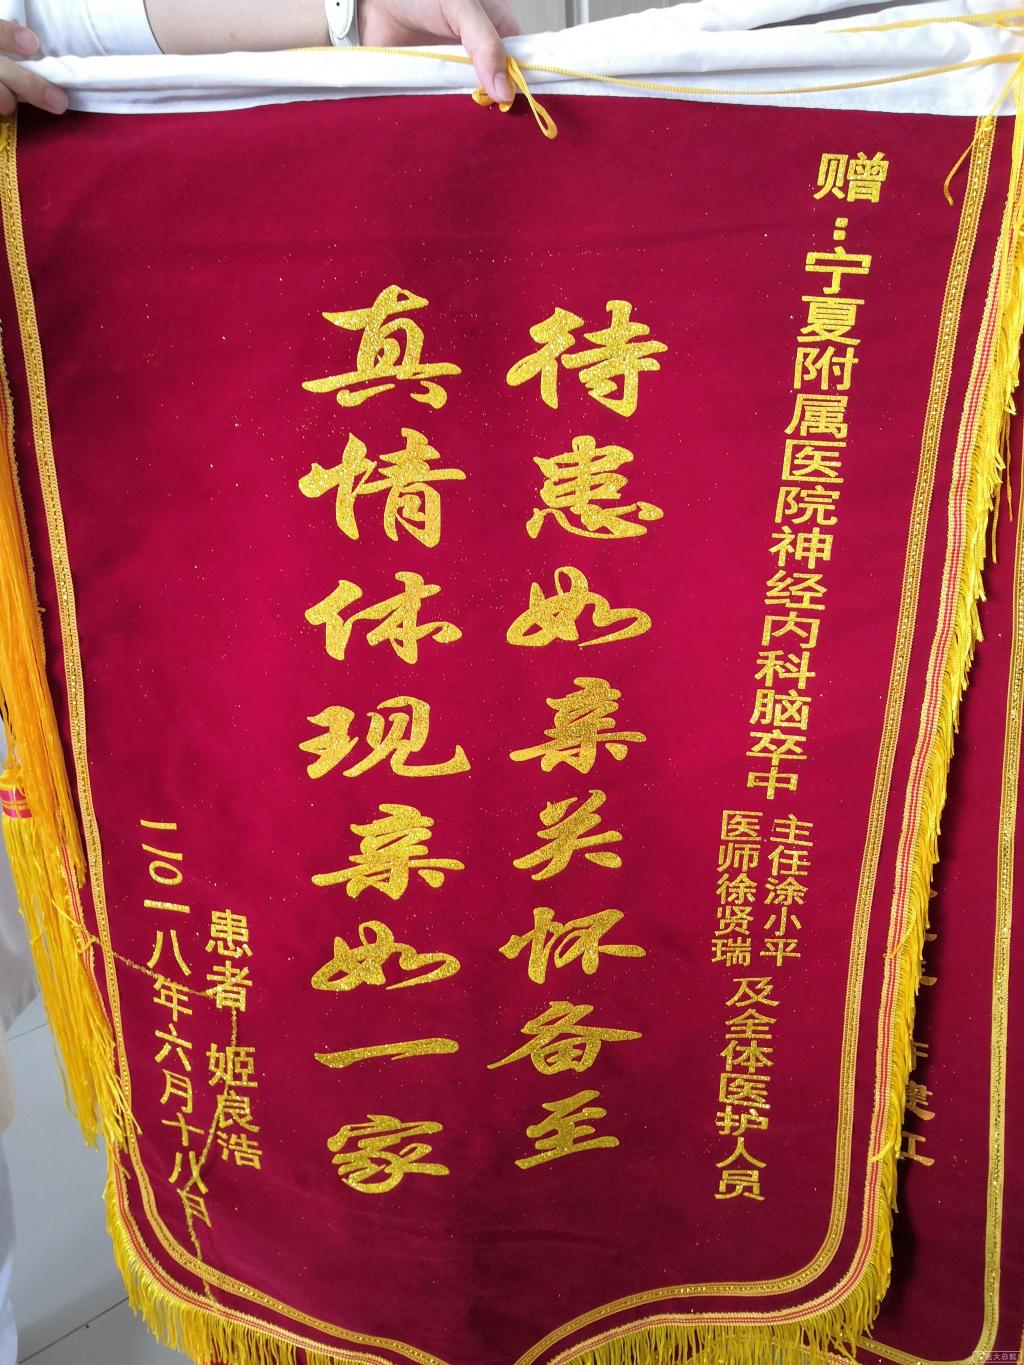 赠：宁夏附属医院神经内科脑卒中
主任涂小平
医师徐贤瑞
及全体医护人员
待患如亲关怀备至
真情体现亲如一家
患者 姬良浩
二〇一八年六月十八日
建江